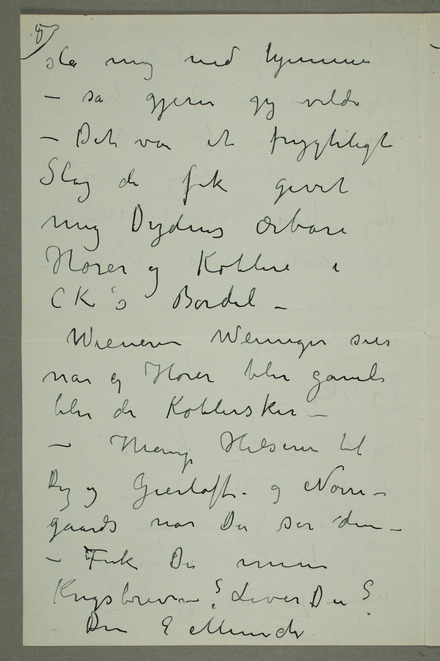 5)
slå mig ned hjemme
– så gjerne jeg vilde
– Det var et frygteligt
Slag de fik givet
mig Dydens ærbare
Horer og Koblere i
CK's Bordel –
Wieneren Weininger sier
når en Horer blir gamle
blir de Koblersker –
– Mange Hilsener til
Dig og Gierløff. og Nørre-
gaards når Du ser dem –
– Fik Du mine
Krigsbreve? Lever Du?
Din E Munch